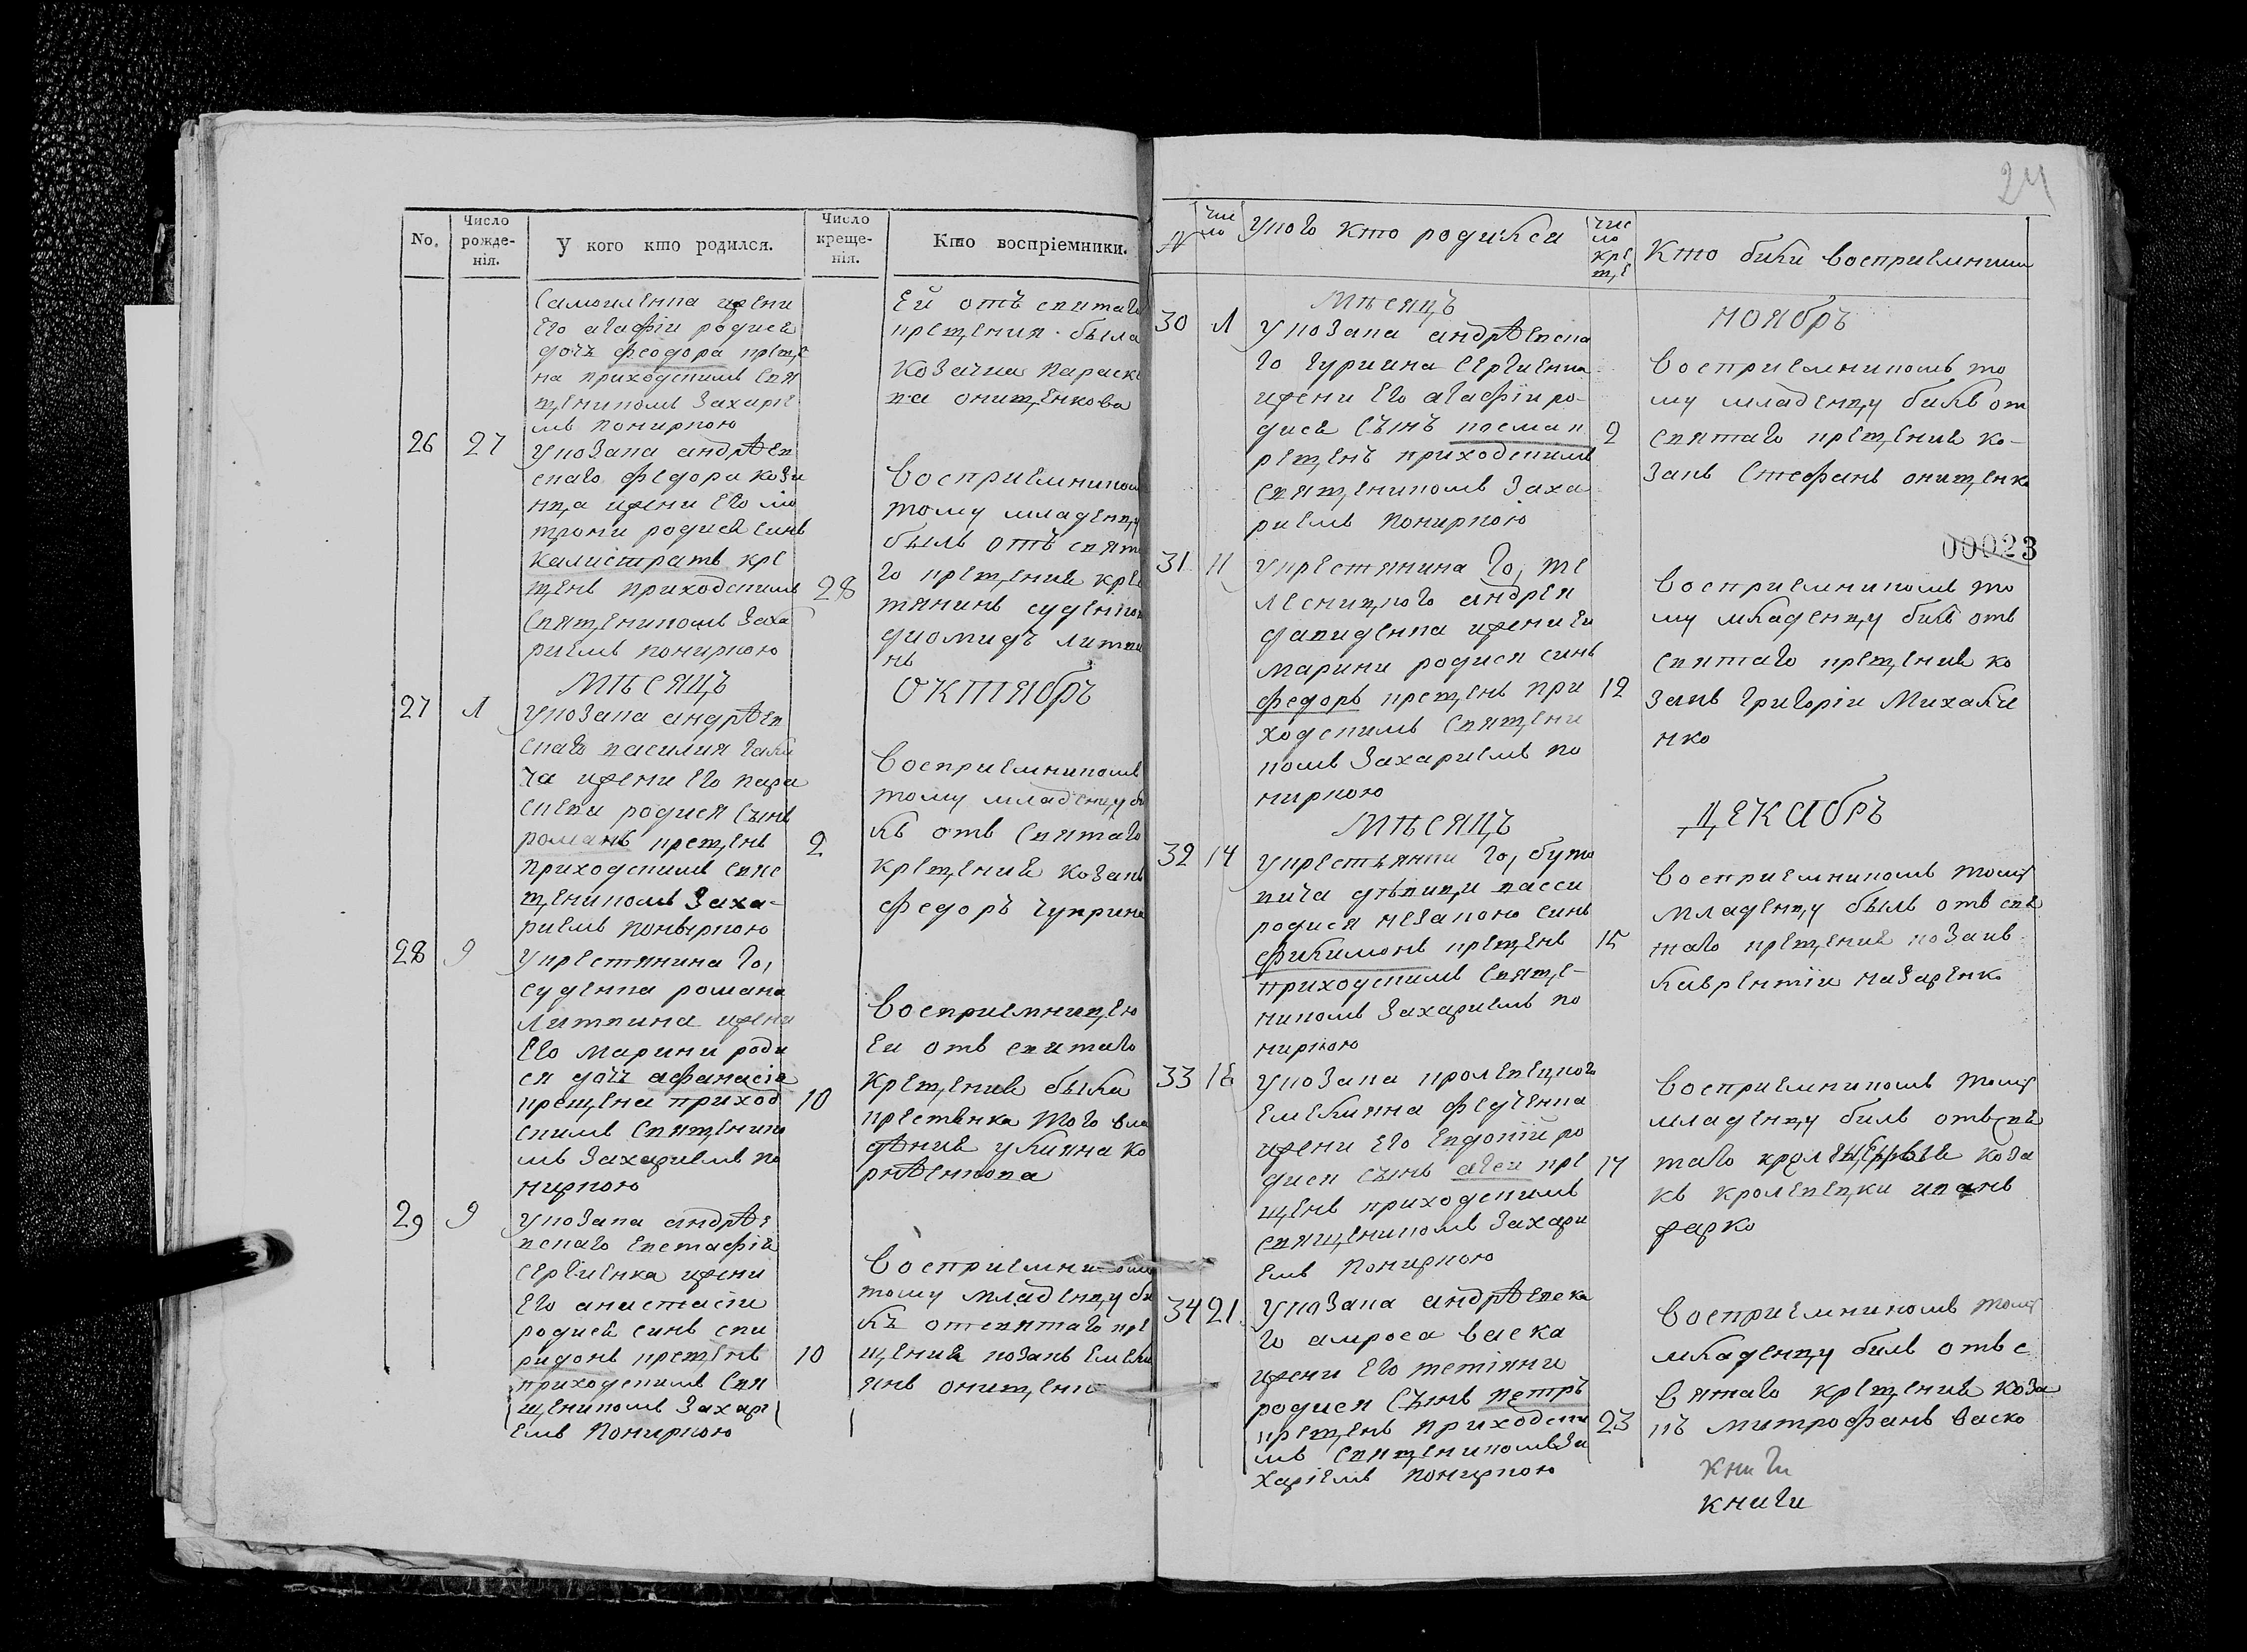 No.
Число рожде-нія.
У кого кто родился.
Число креще-нія.
Кто воспріемники.
Самоиленка жени
Его агафіи родися
дочь феодора креще
на приходскимъ Свя
щеникомъ Захаріе
мъ Пониркою
Ей отъ святаго
крещения была
Козачка Параске
ва онищенкова
26 27
У козака андрѣев
скаго федора кози
нца жени Его ма
трони родися синъ
Калистратъ кре
щенъ приходскимъ 28
Священикомъ Заха
риемъ пониркою
Восприемником
тому младенцу
былъ отъ свята
го крещения крес
тянинъ суденков
диомидъ литви
нъ
МѢСЯЦЪ ОКТЯБРЪ
27 1
У козака андрѣев
скаго василия
жени Его пара
скеви родися Сынъ
романъ крещенъ 2
приходскимъ Свяс
щеникомъ Заха-
риемъ Поныркою
Восприемникомъ
тому младенцу би
лъ отъ Святаго
крещения козакъ
федоръ чуприна
28 9
У крестянина го,
суденка романа
Литвина жени
Его Марини роди
ся дочь афанасія
крещена приход 10
скимъ Священико
мъ Захариемъ По
ниркою
Восприемницею
Еи отъ святаго
Крещения была
крестянка того вла
дѣния улияна ко
рнѣенкова
29 9
У козака андрѣе
вскаго Евстафія
Сергиенка жени
Его анастасіи
родися синъ спи
ридонъ крещенъ 10
приходскимъ Свя
щеникомъ Захари
Емъ Пониркою
Восприемникомъ
тому младенцу би
лъ отсвятаго кре
щения козакъ Емели
янъ онищенко
24
№
Чис ло
У кого кто родился
Чис ло кре ще
Кто били восприемники
МѢСЯЦЪ НОЯБРЪ
30 1
У козака андрѣевска
го Сергиенка
жени Его агафіи ро-
дися Сынъ косма к 2
рещенъ приходскимъ
Священикомъ Заха
риемъ Пониркою
Восприемникомъ то
му младенцу билъ от
святаго крещения ко-
закъ Стефанъ онищенко
00023
31 11
У крестянина го, ме
андрея
давиденка жени Еи
марини родися синъ
федоръ крещенъ при 12
ходскимъ Священи
комъ Захариемъ По
ниркою
Восприемникомъ то
му младенцу билъ отъ
святаго крещения ко
закъ Григоріи Михайле
нко
МѢСЯЦЪ ДЕКАБРЪ
32 14
У крестянки го, буто
вича дѣвици васси
родися незаконо синъ
филимонъ крещенъ 15
приходскимъ Святе-
никомъ Захариемъ По
ниркою
Восприемникомъ тому
младенцу былъ отъ свя
таго крещения козакъ
лаврентіи назаренко
33 16
У козака кролевецкого
Емелияна федченка
жени Его Евдокіи ро
дися сынъ агеи кре 17
щенъ приходскимъ
священикомъ Захари
Емъ Пониркою
Восприемникомъ тому
младенцу билъ отъ свя
таго коза
къ кролевецки иванъ
рарко
34 21
У козака андрѣевска
го амроса васка
жени Его тетіяни
родися Сынъ петръ
крещенъ Приходски 23
мъ Священикомъ За
харіемъ Пониркою
Восприемникомъ тому
младенцу билъ отъ с
вятаго крещения коза
къ митрофанъ васко
книги
книги